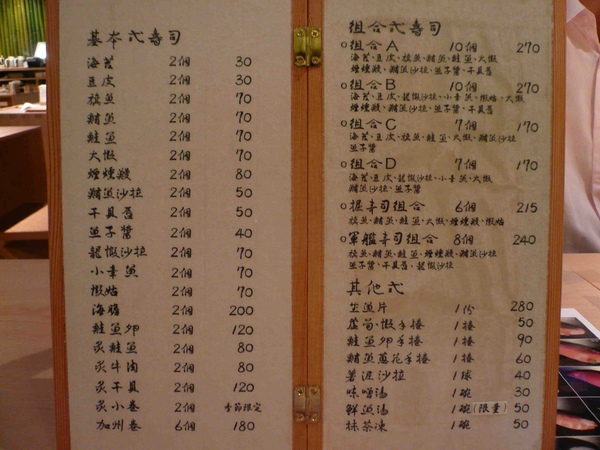 基本式壽司
海苔 2個 30
豆皮 2個 30
旗魚 2個 70
鮪魚 2個 70
鮭魚 2個 70
大蝦 2個 70
煙燻鰻 2個 80
鮪魚沙拉 2個 50
干貝唇 2個 50
魚子醬 2個 40
龍蝦沙拉 2個 70
小章魚 2個 70
蝦蛄 2個 70
海膽 2個 200
鮭魚卵 2個 120
炙鮭魚 2個 80
炙牛肉 2個 80
炙干貝 2個 120
炙小卷 2個 季節限定
加州卷 6個 180
組合式壽司
組合A 10個 270
海苔、豆皮、旗魚、鮪魚、鮭魚、大蝦
煙燻鰻、鮪魚沙拉、魚子醬、干貝唇
組合B 10個 270
海苔、豆皮、龍蝦沙拉、小章魚、蝦蛄、大蝦
煙燻鰻、鮪魚沙拉、魚子醬、干貝唇
組合C 7個 170
海苔、豆皮、旗魚、鮭魚、大蝦、鮪魚沙拉
魚子醬
組合D 7個 170
海苔、豆皮、龍蝦沙拉、小章魚、大蝦
鮪魚沙拉、魚子醬
握壽司組合 6個 215
旗魚、鮪魚、鮭魚、大蝦、煙燻鰻、蝦蛄
軍艦壽司組合 8個 240
旗魚、鮪魚、鮭魚、煙燻鰻、鮪魚沙拉
魚子醬、干貝唇、龍蝦沙拉
其他式
生魚片 1份 280
蘆筍蝦手捲 1捲 50
鮭魚卵手捲 1捲 90
鮪魚蔥花手捲 1捲 60
薯泥沙拉 1球 40
味噌湯 1碗 30
鮮魚湯 1碗(限量) 50
抹茶凍 1碗 50